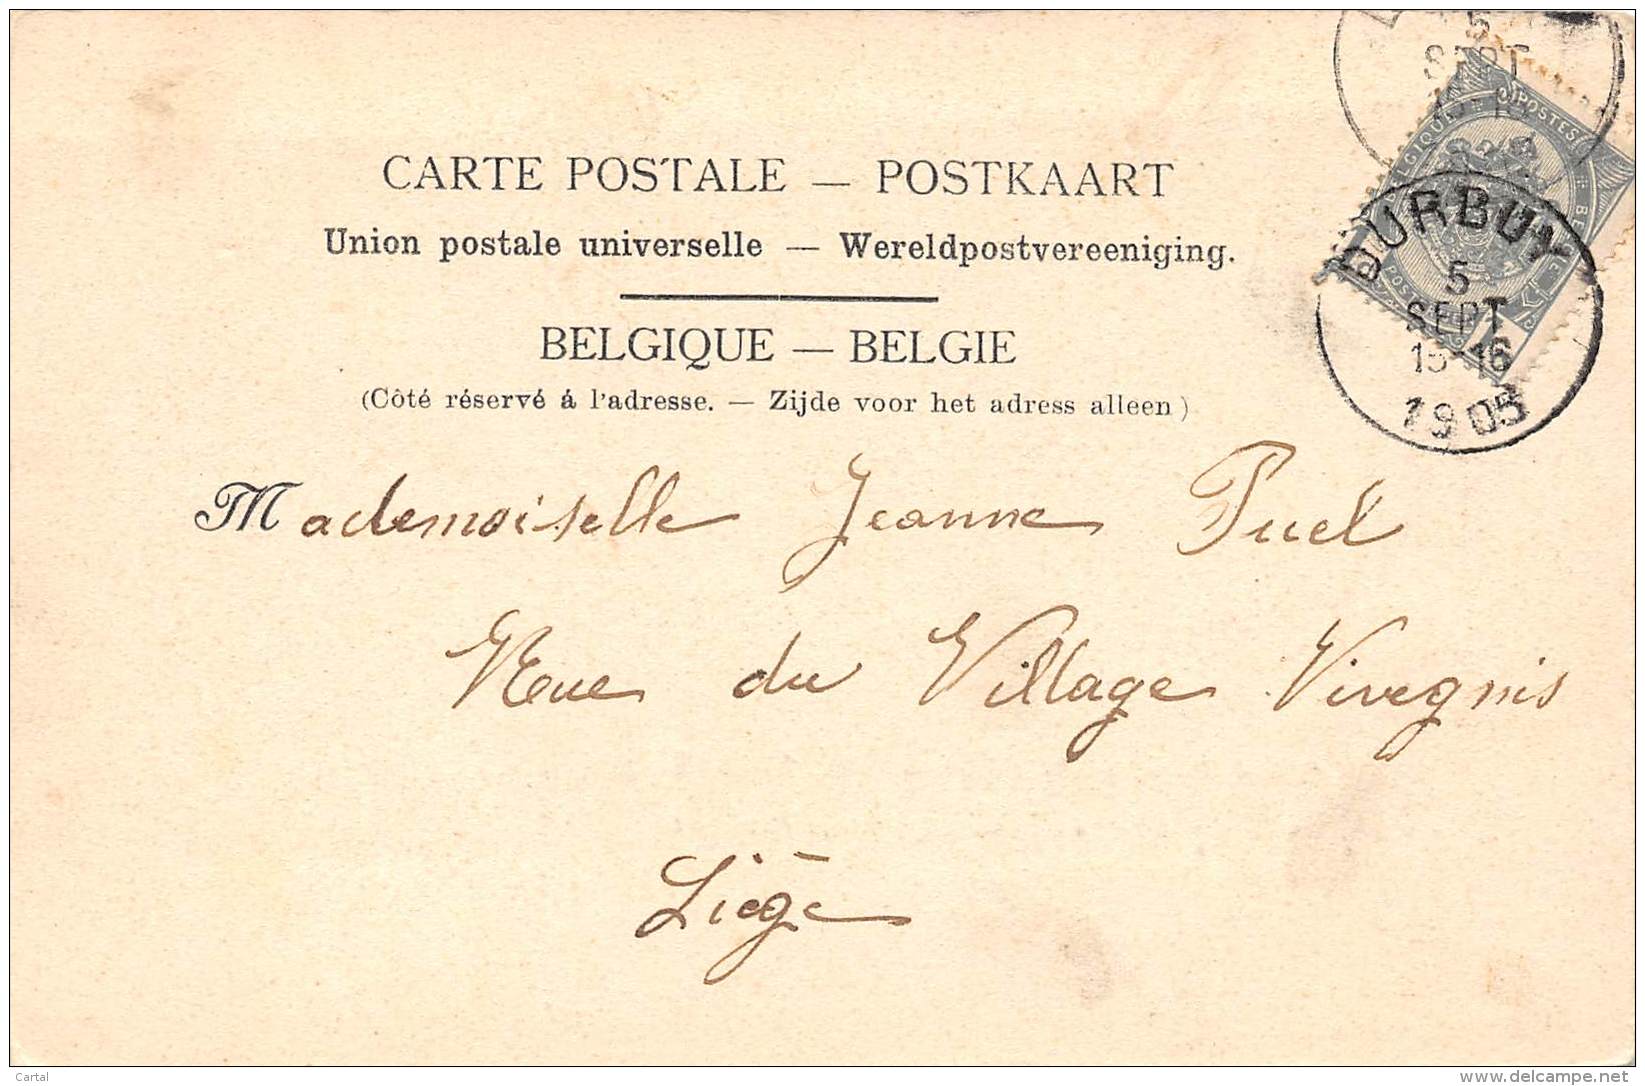 CARTE POSTALE — POSTKAART
Union postale universelle — Wereldpostvereeniging.
BELGIQUE — BELGIE
(Côté réservé á l'adresse. — Zijde voor het adress alleen)
5
SEPT
POSTES
DURBUY
5
SEPT
15-16
1905
Mademoiselle Jeanne Puel
Rue du Village Vivegnis
Liège
Cartal
www.delcampe.net